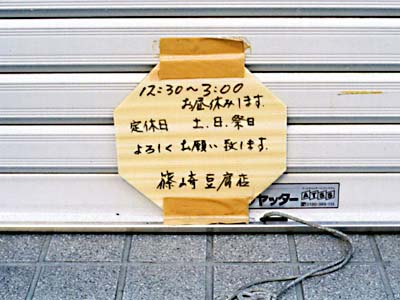 12:30〜3:00
お昼休みます.
定休日 土.日.祭日
よろしくお願い致します.
篠崎豆腐店
ャッター
ATSS